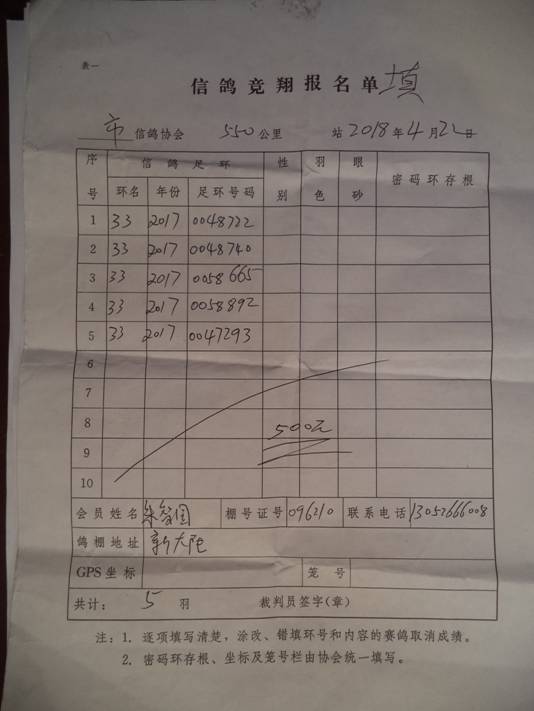 表一
信鸽竞翔报名单 填
市 信鸽协会 550 公里 站 2018 年 4 月 21 日
序号 信鸽足环 性别 羽色 眼砂 密码环存根
环名 年份 足环号码
1 33 2017 0048722
2 33 2017 0048740
3 33 2017 0058665
4 33 2017 0058892
5 33 2017 0047293
6
7
8 500元
9
10
会员姓名 朱智国 棚号证号 096210 联系电话 13052666008
鸽棚地址 新大陆
GPS坐标 笼号
共计： 5 羽 裁判员签字(章)
注：1. 逐项填写清楚，涂改、错填环号和内容的赛鸽取消成绩。
2. 密码环存根、坐标及笼号栏由协会统一填写。